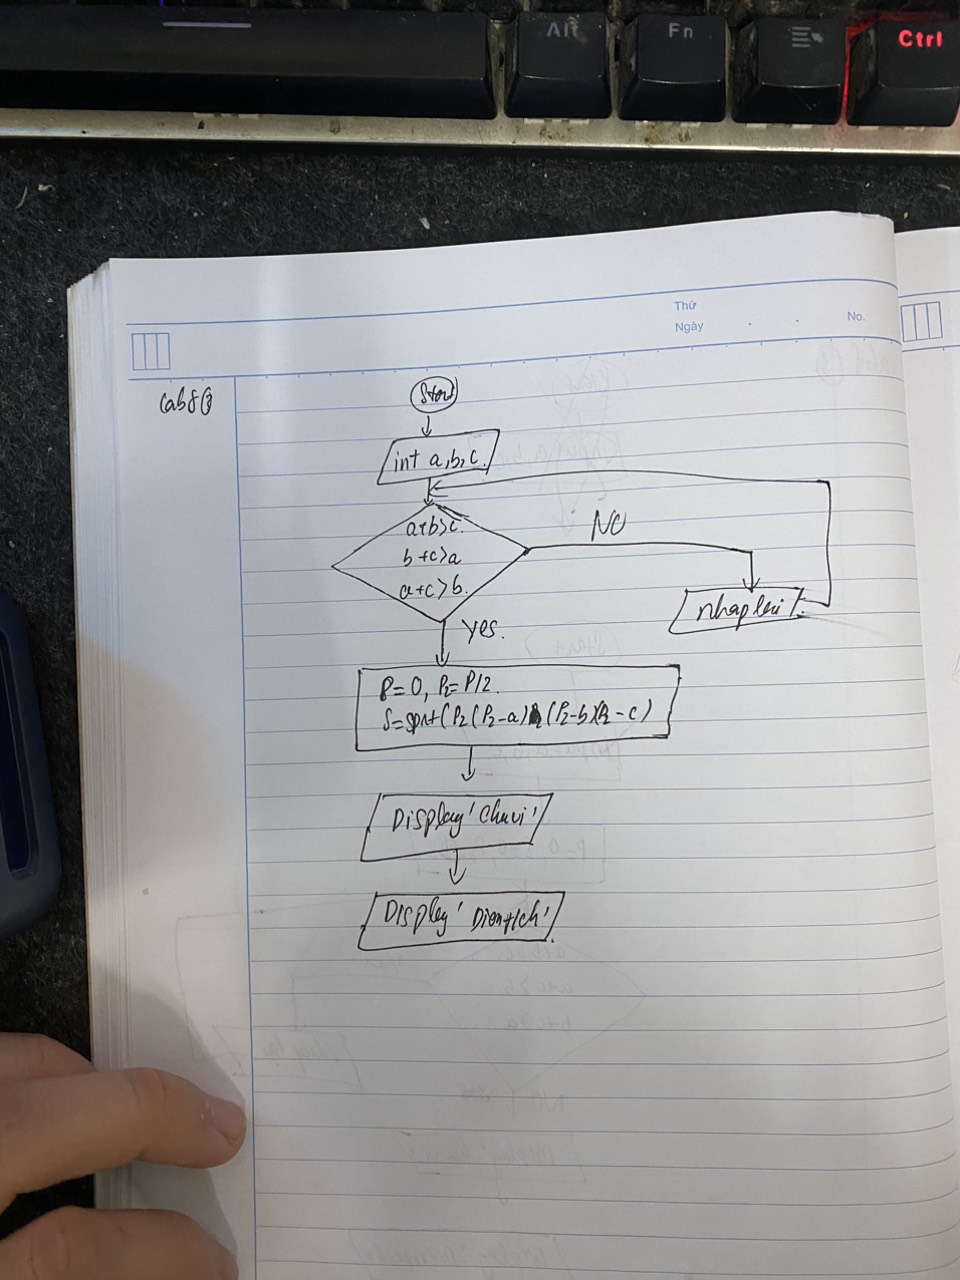 Alt
Fn
Ctrl
Thứ
Ngày
No.
Start
int a,b,c.
a+b>c.
b+c>a
a+c>b.
NO
nhap lai
yes.
P=0, P2=P/2.
(P2(P2-a) (P2-b)(P2-c)
Display 'Chuvi'
Display 'Dientich'